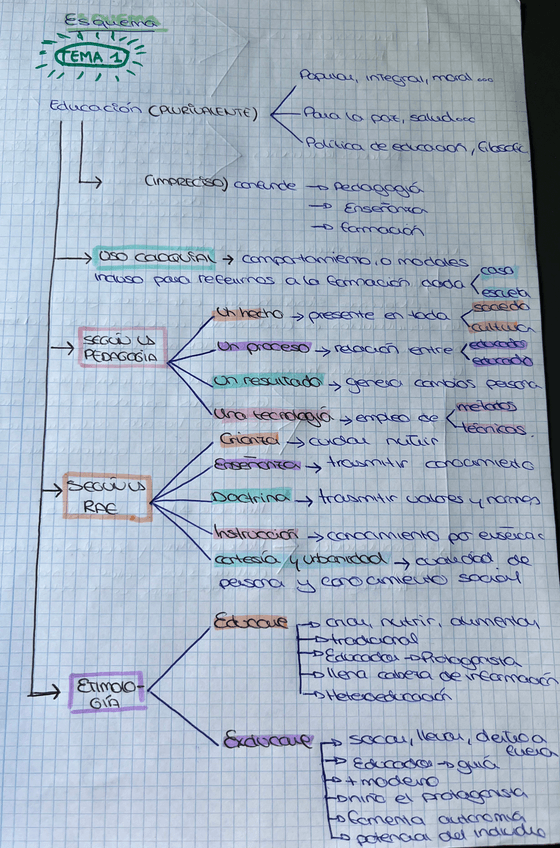 Esquema
TEMA 1
Educación (PLURIVALENTE)
Popular, integral, moral...
Para la paz, salud...
Política de educación, filosofic.
(IMPRECISO) confunde → Pedagogía
→ Enseñanza
→ Formación
USO COLOQUIAL → comportamiento, o modales
incluso para referirnos a la formación dada
casa
escuela
SEGÚN LA PEDAGOGÍA
Un hecho → presente en toda
sociedad
cultura
Un proceso → relación entre
educador
educado
Un resultado → genera cambios persona
Una tecnología → empleo de
métodos
técnicas.
SEGÚN LA RAE
Crianza → cuidar nutrir
Enseñanza → trasmitir conocimiento
Doctrina → trasmitir valores y normas
Instrucción → conocimiento por
cortesía y urbanidad → cualidad de
persona y conocimiento social
ETIMOLO-
GÍA
Educare
→ criar, nutrir, alimentar
→ tradicional
→ Educador → Protagonista
→ llena cabeza de información
→ Heteroeducación
Exducere
→ sacar, llevar, desde a
fuera
→ Educador → guía
→ + moderno
→ niño el protagonista
→ fomenta autonomía
→ potencial del individuo